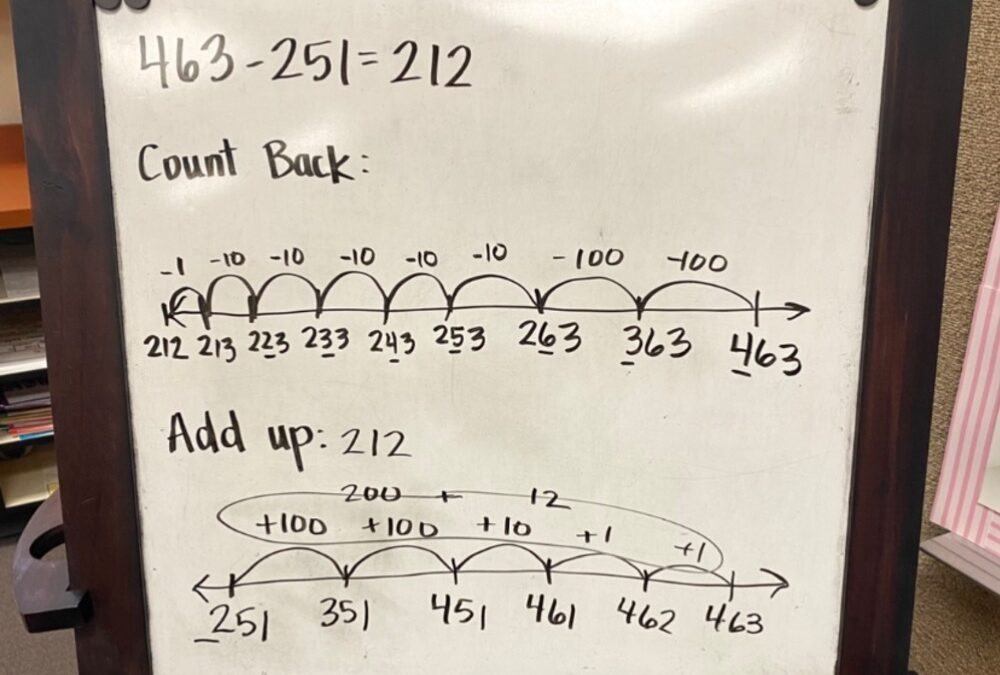 463-251=212
Count Back:
-1 -10 -10 -10 -10 -10 -100 -100
212 213 223 233 243 253 263 363 463
Add up: 212
200 + 12
+100 +100 +10 +1 +1
251 351 451 461 462 463